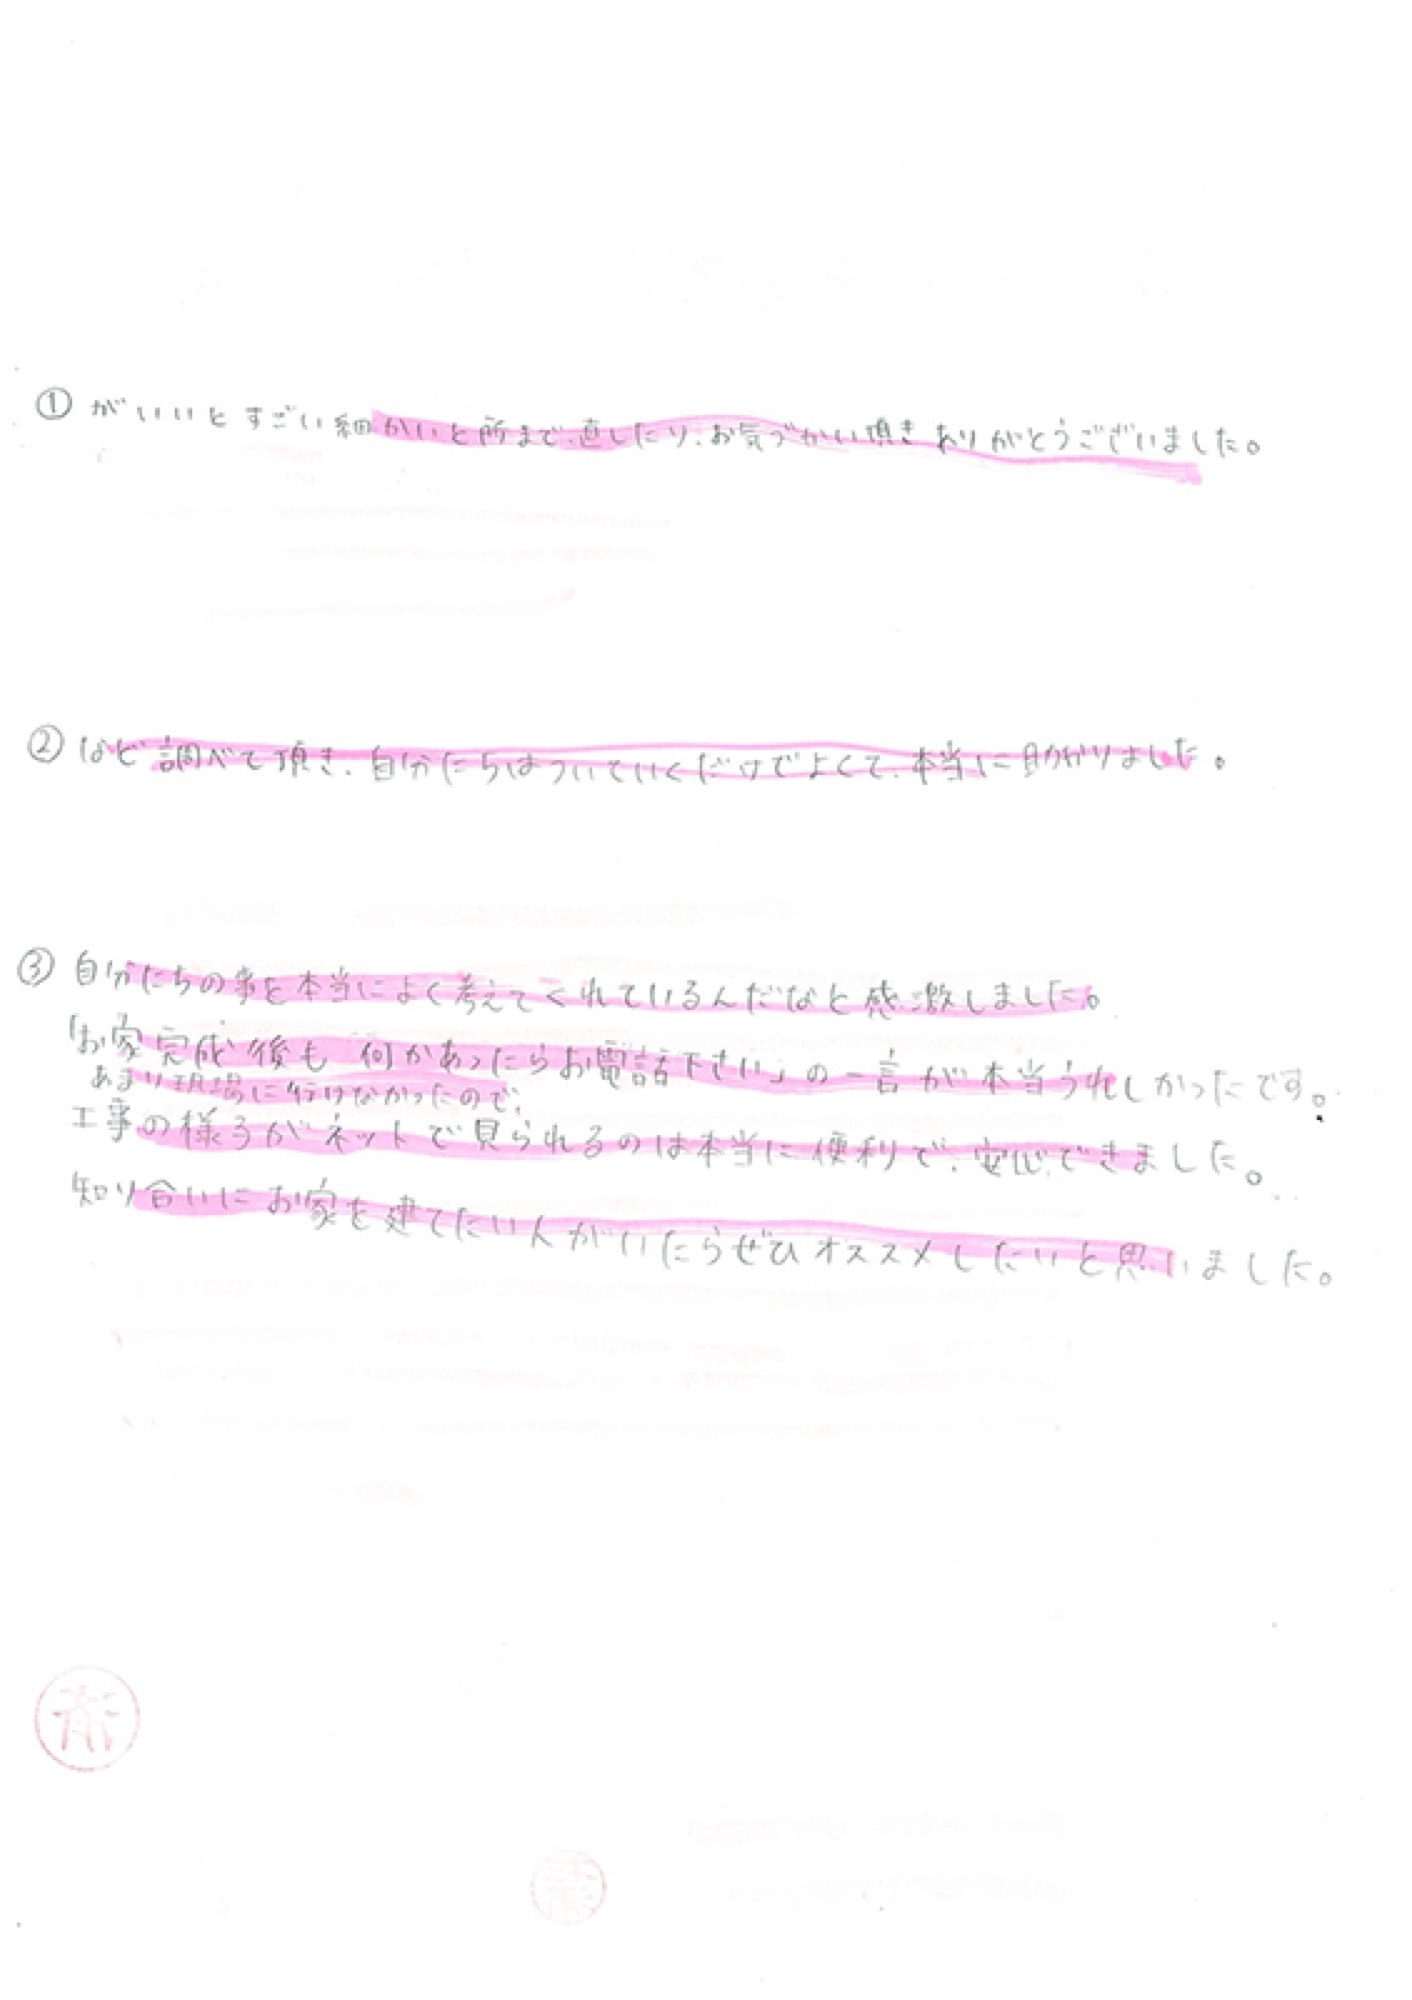 ① がいいと すごい細かいと所まで、直したり、お気づかい頂き ありがとうございました。
② など調べて頂き、自分たちはついていくだけでよくて、本当に助かりました。
③ 自分たちの事を本当によく考えてくれているんだなと感激しました。
「お家完成後も 何かあったらお電話下さい」の一言が本当うれしかったです。
あまり現場に行けなかったので、
工事の様子がネットで見られるのは本当に便利で、安心できました。
知り合いにお家を建てたい人がいたらぜひオススメしたいと思いました。